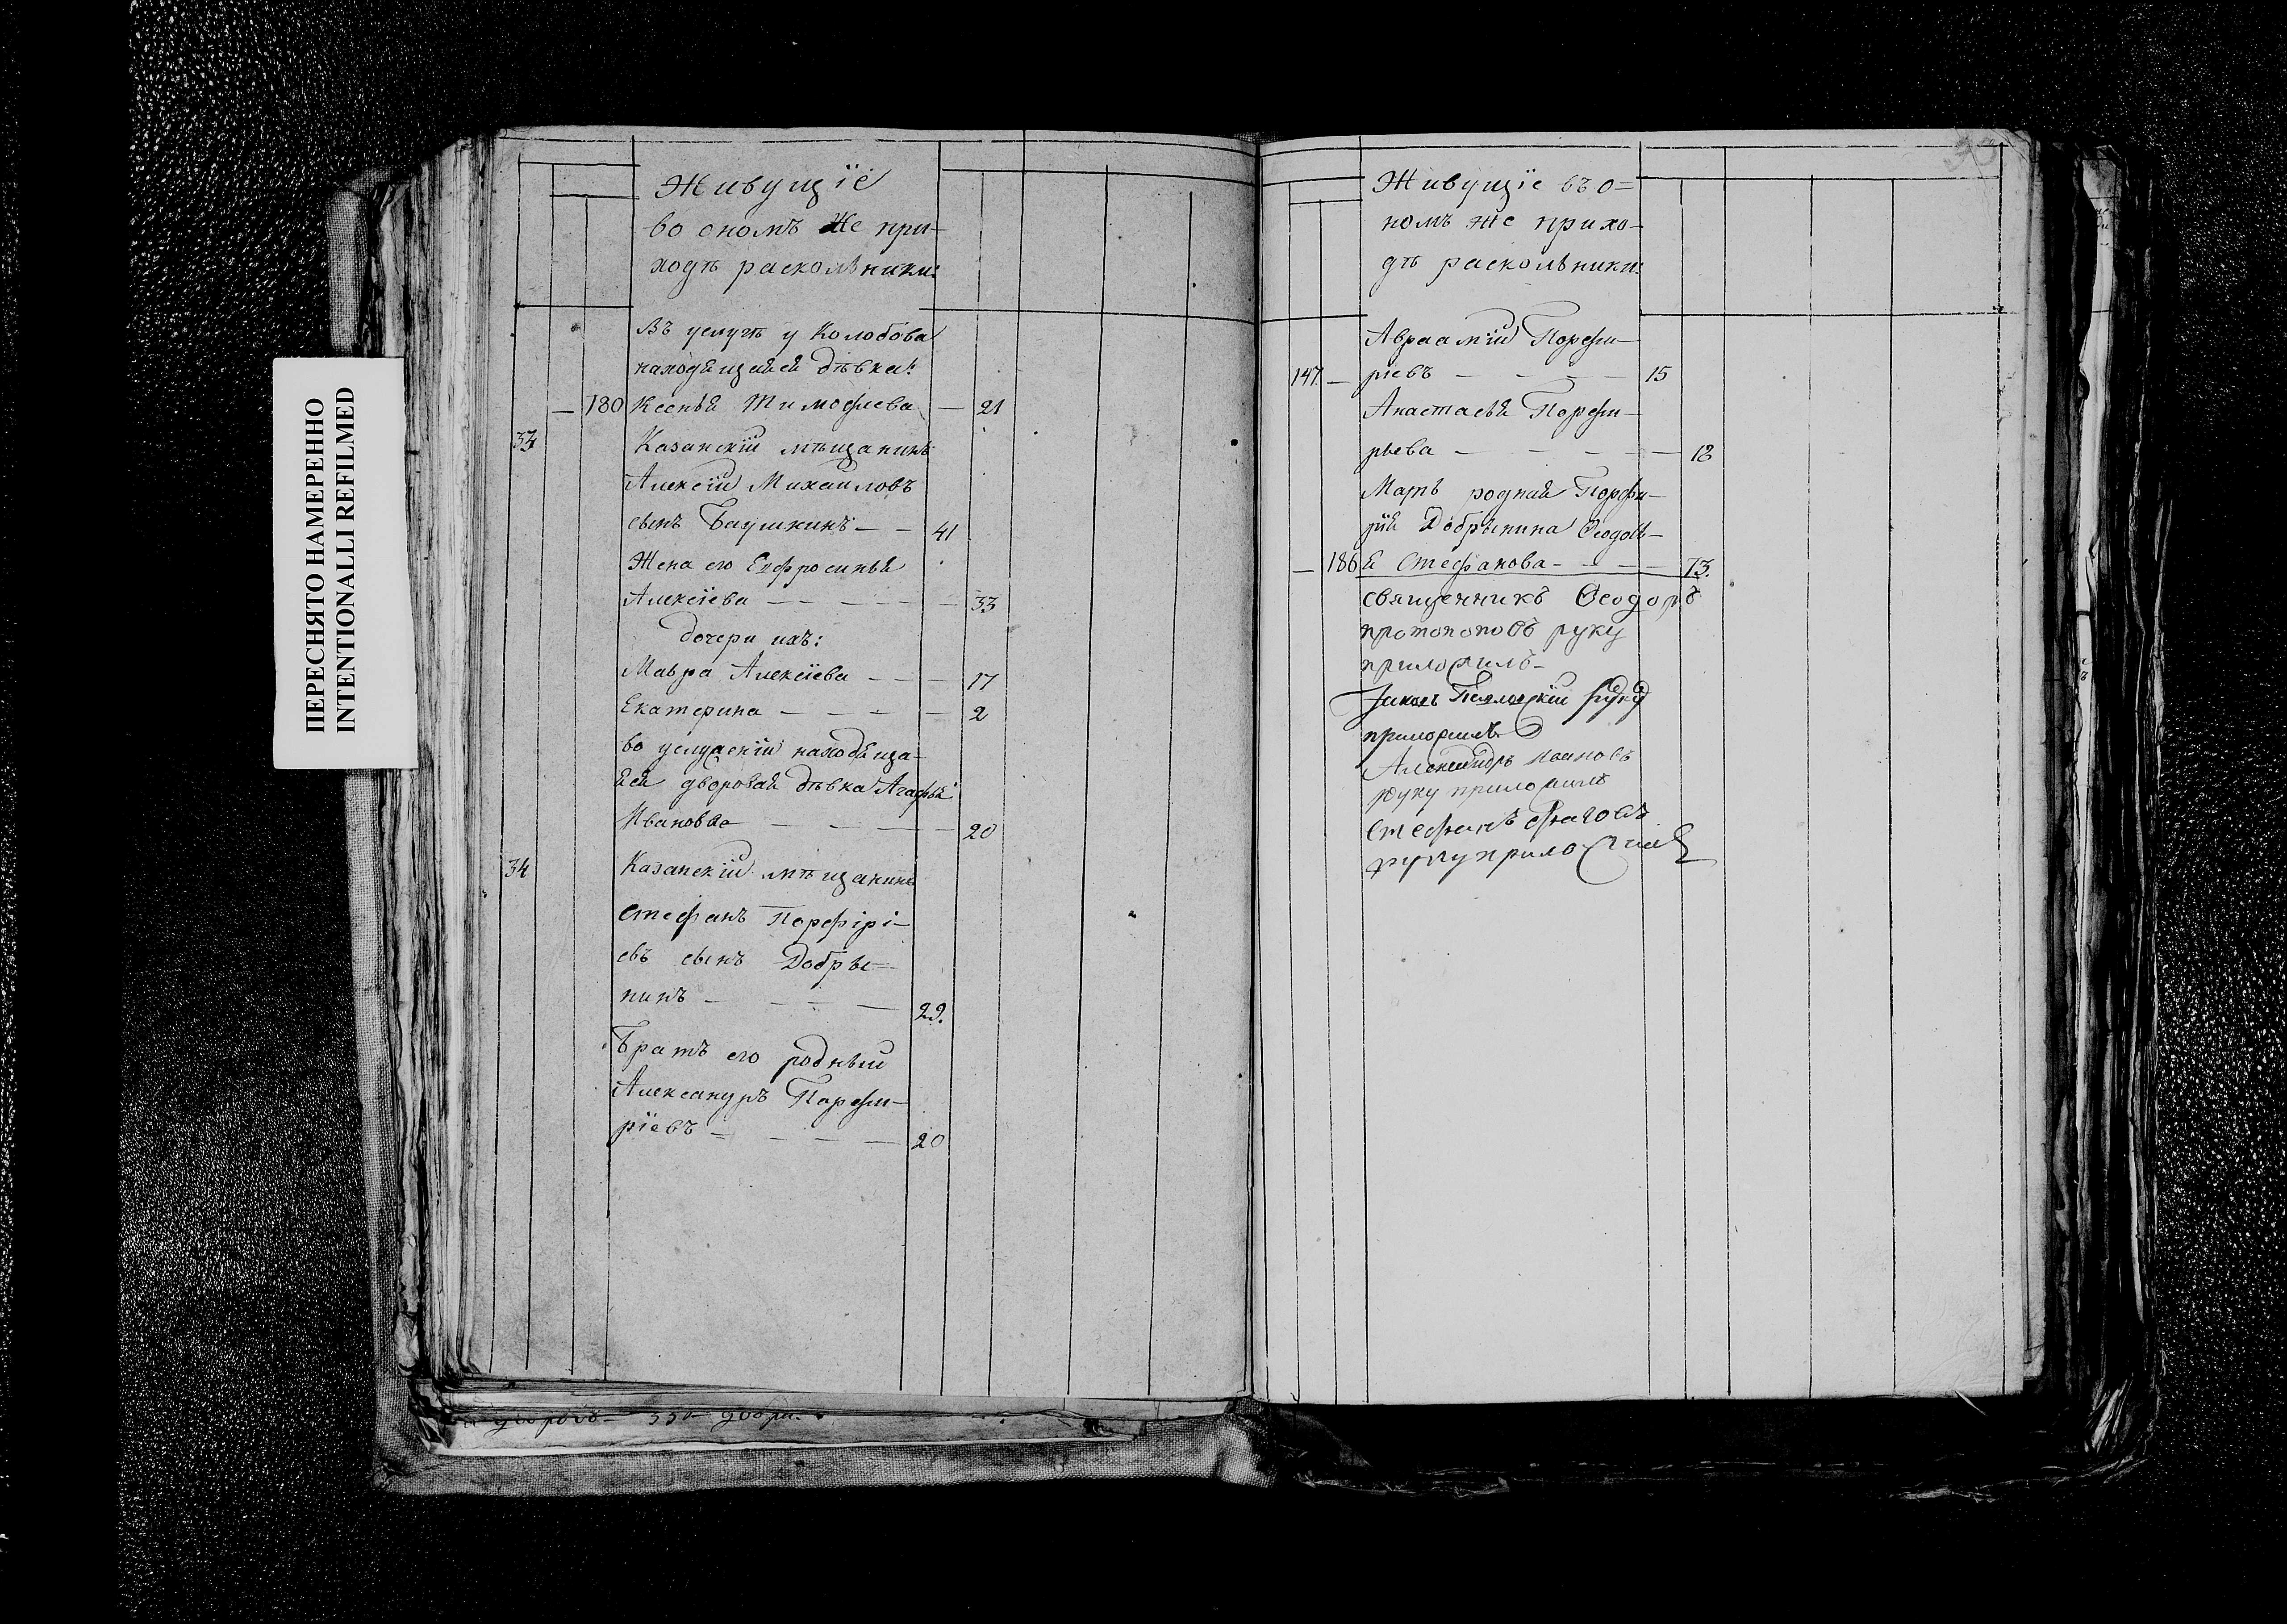 ПЕРЕСНЯТО НАМЕРЕННО
INTENTIONALLI REFILMED
Живущїе
во ономъ же при-
ходѣ раскольники:
Въ услугѣ у Колобова
находящаяся дѣвка:
— 180 Ксенья Тимофеева — 21
33 Казанскїй мѣщанинъ
Алексїй Михаиловъ
сынъ Баушкинъ — — 41
Жена его Евфросинья
Алексїева — — — — 33
дочери ихъ:
Мавра Алексїева — — — 17
Екатерина — — — — 2
во услуженїи находяща-
яся дворовая дѣвка Агафья
Иванова — — — — 20
34 Казанскїй мѣщанинъ
Стефанъ Порфірі-
евъ сынъ Добры-
нинъ — — — — 29.
Братъ его родный
Александръ Порфи-
рїевъ — — — — 20
Живущїе въ о=
номъ же прихо-
дѣ раскольники:
Авраамїй Порфи-
147. — рїевъ — — — — 15
Анастасья Порфи-
рьева — — — — — 18
Мать родная Порфи-
рїя Добрынина Ѳеодось-
— 186 я Стефанова — — — 73.
священникъ Ѳеодоръ
протопоповъ руку
приложилъ-
руку
приложилъ
Александръ Ивановъ
руку приложилъ
Стефанъ
руку приложилъ
дворовъ 330